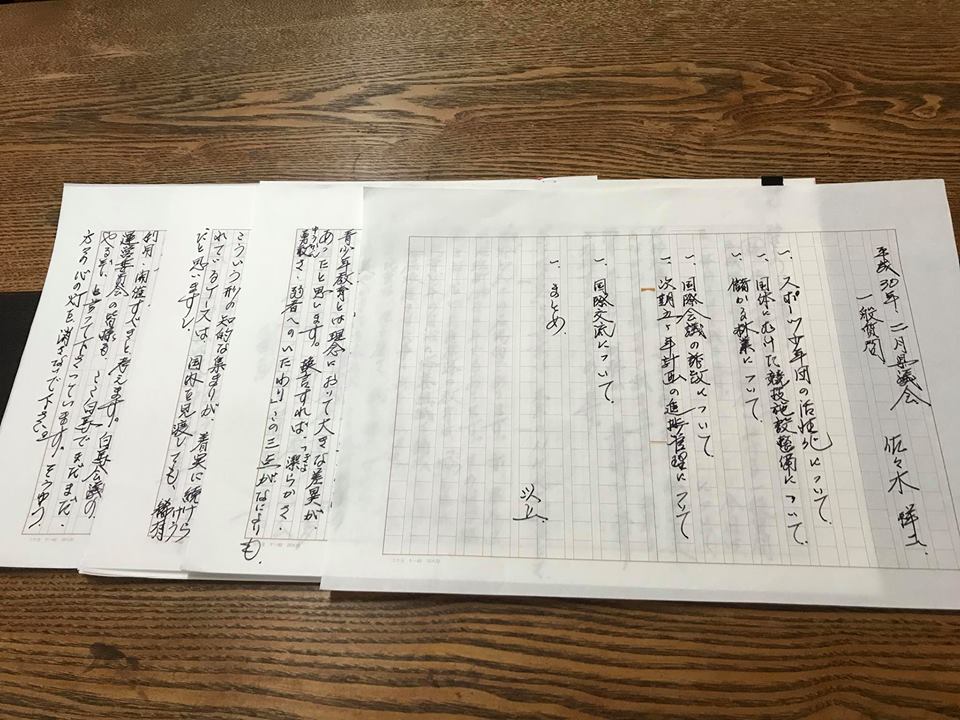 平成30年、二月県議会
一般質問
佐々木 祥二
一、スポーツ少年団の活性化について
一、国体にむけた競技施設整備について
一、儲かる林業について
一、国際会議の誘致について
一、次期五ヶ年計画の進捗管理について
一、国際交流について
一、まとめ
以上
青少年教育とは理念において大きな差異が、
あったと思います。換言すれば、つよさ
勇敢さ、弱者へのいたわり、この三点がなによりも、
こういう形の知的な集まりが、着実に続けら
れているケースは、国外を見渡しても、稀有
だと思いますし、
利用・開催すべきと考えます。白馬会議の、
運営委員会の皆様も、ここ白馬でまだまだ、
やるぞ、と言って下さっています。そうゆう
方々の心の灯を、消さないで下さい。